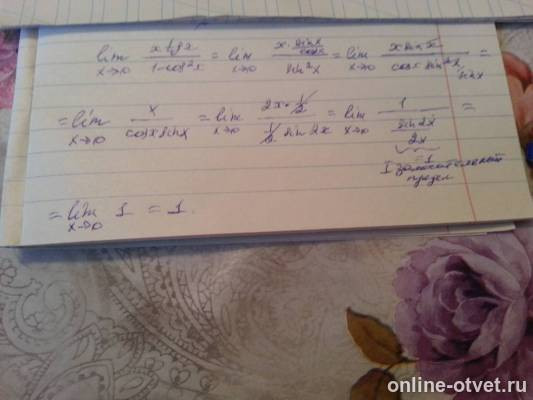 lim x→0 x tg x / 1-cos²x = lim x→0 x · sin x / cos x / sin²x = lim x→0 x sin x / cos x sin²x =
= lim x→0 x / cos x sin x = lim x→0 2x · 1/2 / 1/2 sin 2x = lim x→0 1 / sin 2x / 2x =
= 1
I замечательный
предел
= lim x→0 1 = 1.
online-otvet.ru